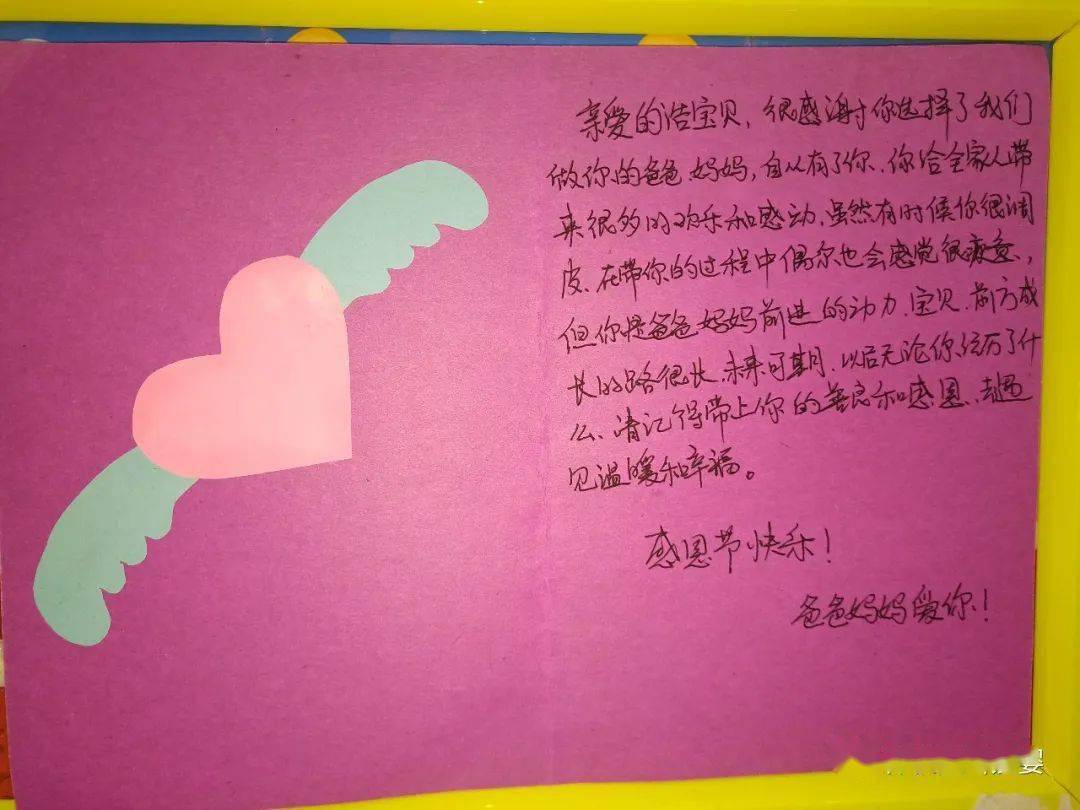 亲爱的洁宝贝，很感谢你选择了我们
做你的爸爸妈妈，自从有了你、你给全家人带
来很多的欢乐和感动、虽然有时候你很调
皮、在带你的过程中偶尔也会感觉很疲惫，
但你是爸爸妈妈前进的动力、宝贝、前方成
长的路很长、未来可期、以后无论你经历了什
么、请记得带上你的善良和感恩、去遇
见温暖和幸福。
感恩节快乐！
爸爸妈妈爱你！